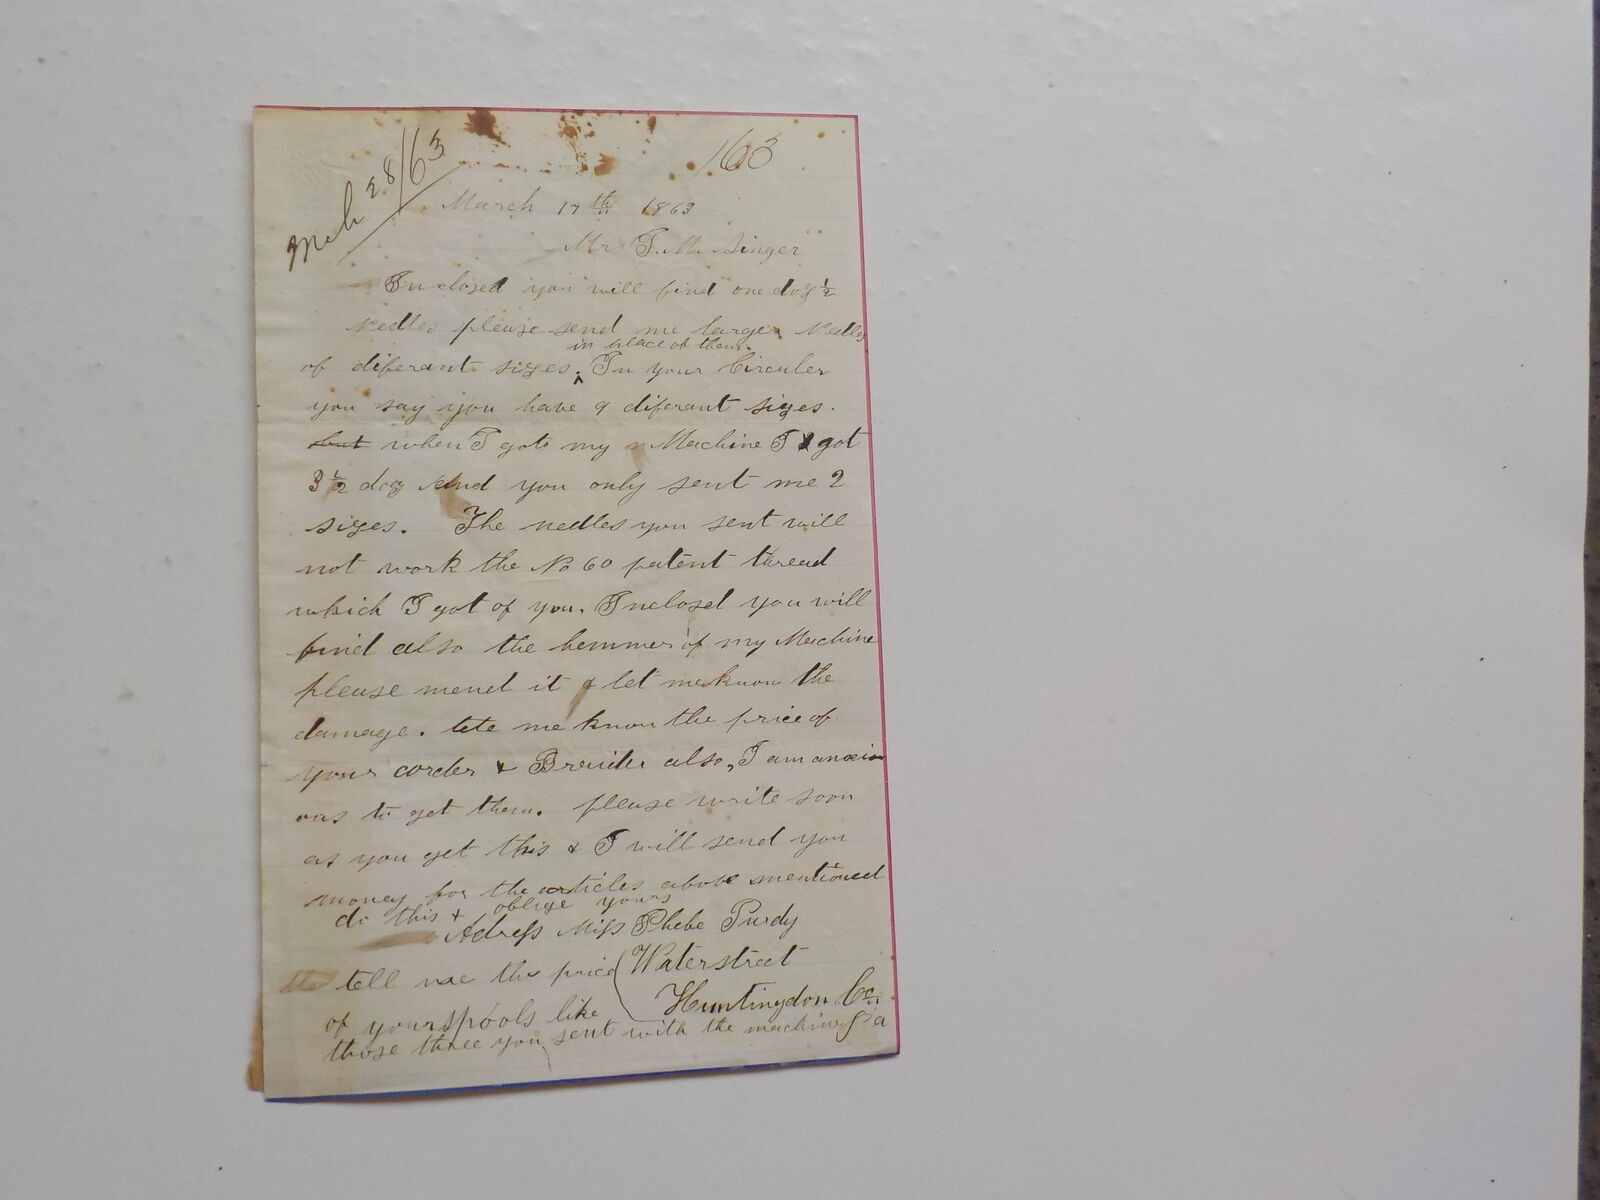 Mch 28/63
163
March 17th 1863
Mr. I. M. Singer
Inclosed you will find one doz 1/2
needles please send me larger Needles
in place of them.
of diferant sizes. ^ In your Circuler
you say you have 9 diferant sizes.
but when I gots my Machine I got
3 1/2 doz And you only sent me 2
sizes. The needles you sent will
not work the No 60 patent thread
which I got of you. Inclosed you will
find also the hemmer of my Machine
please mend it & let me know the
damage. lete me know the price of
your corder & Breider also, I am anxi
ous to get them. please write soon
as you get this & I will send you
money for the articles above mentioned
do this & oblige yours
Adress Miss Phebe Purdy
tell me the price (Waterstreet
Huntingdon Co.
of your spools like
those three you sent with the machine Pa